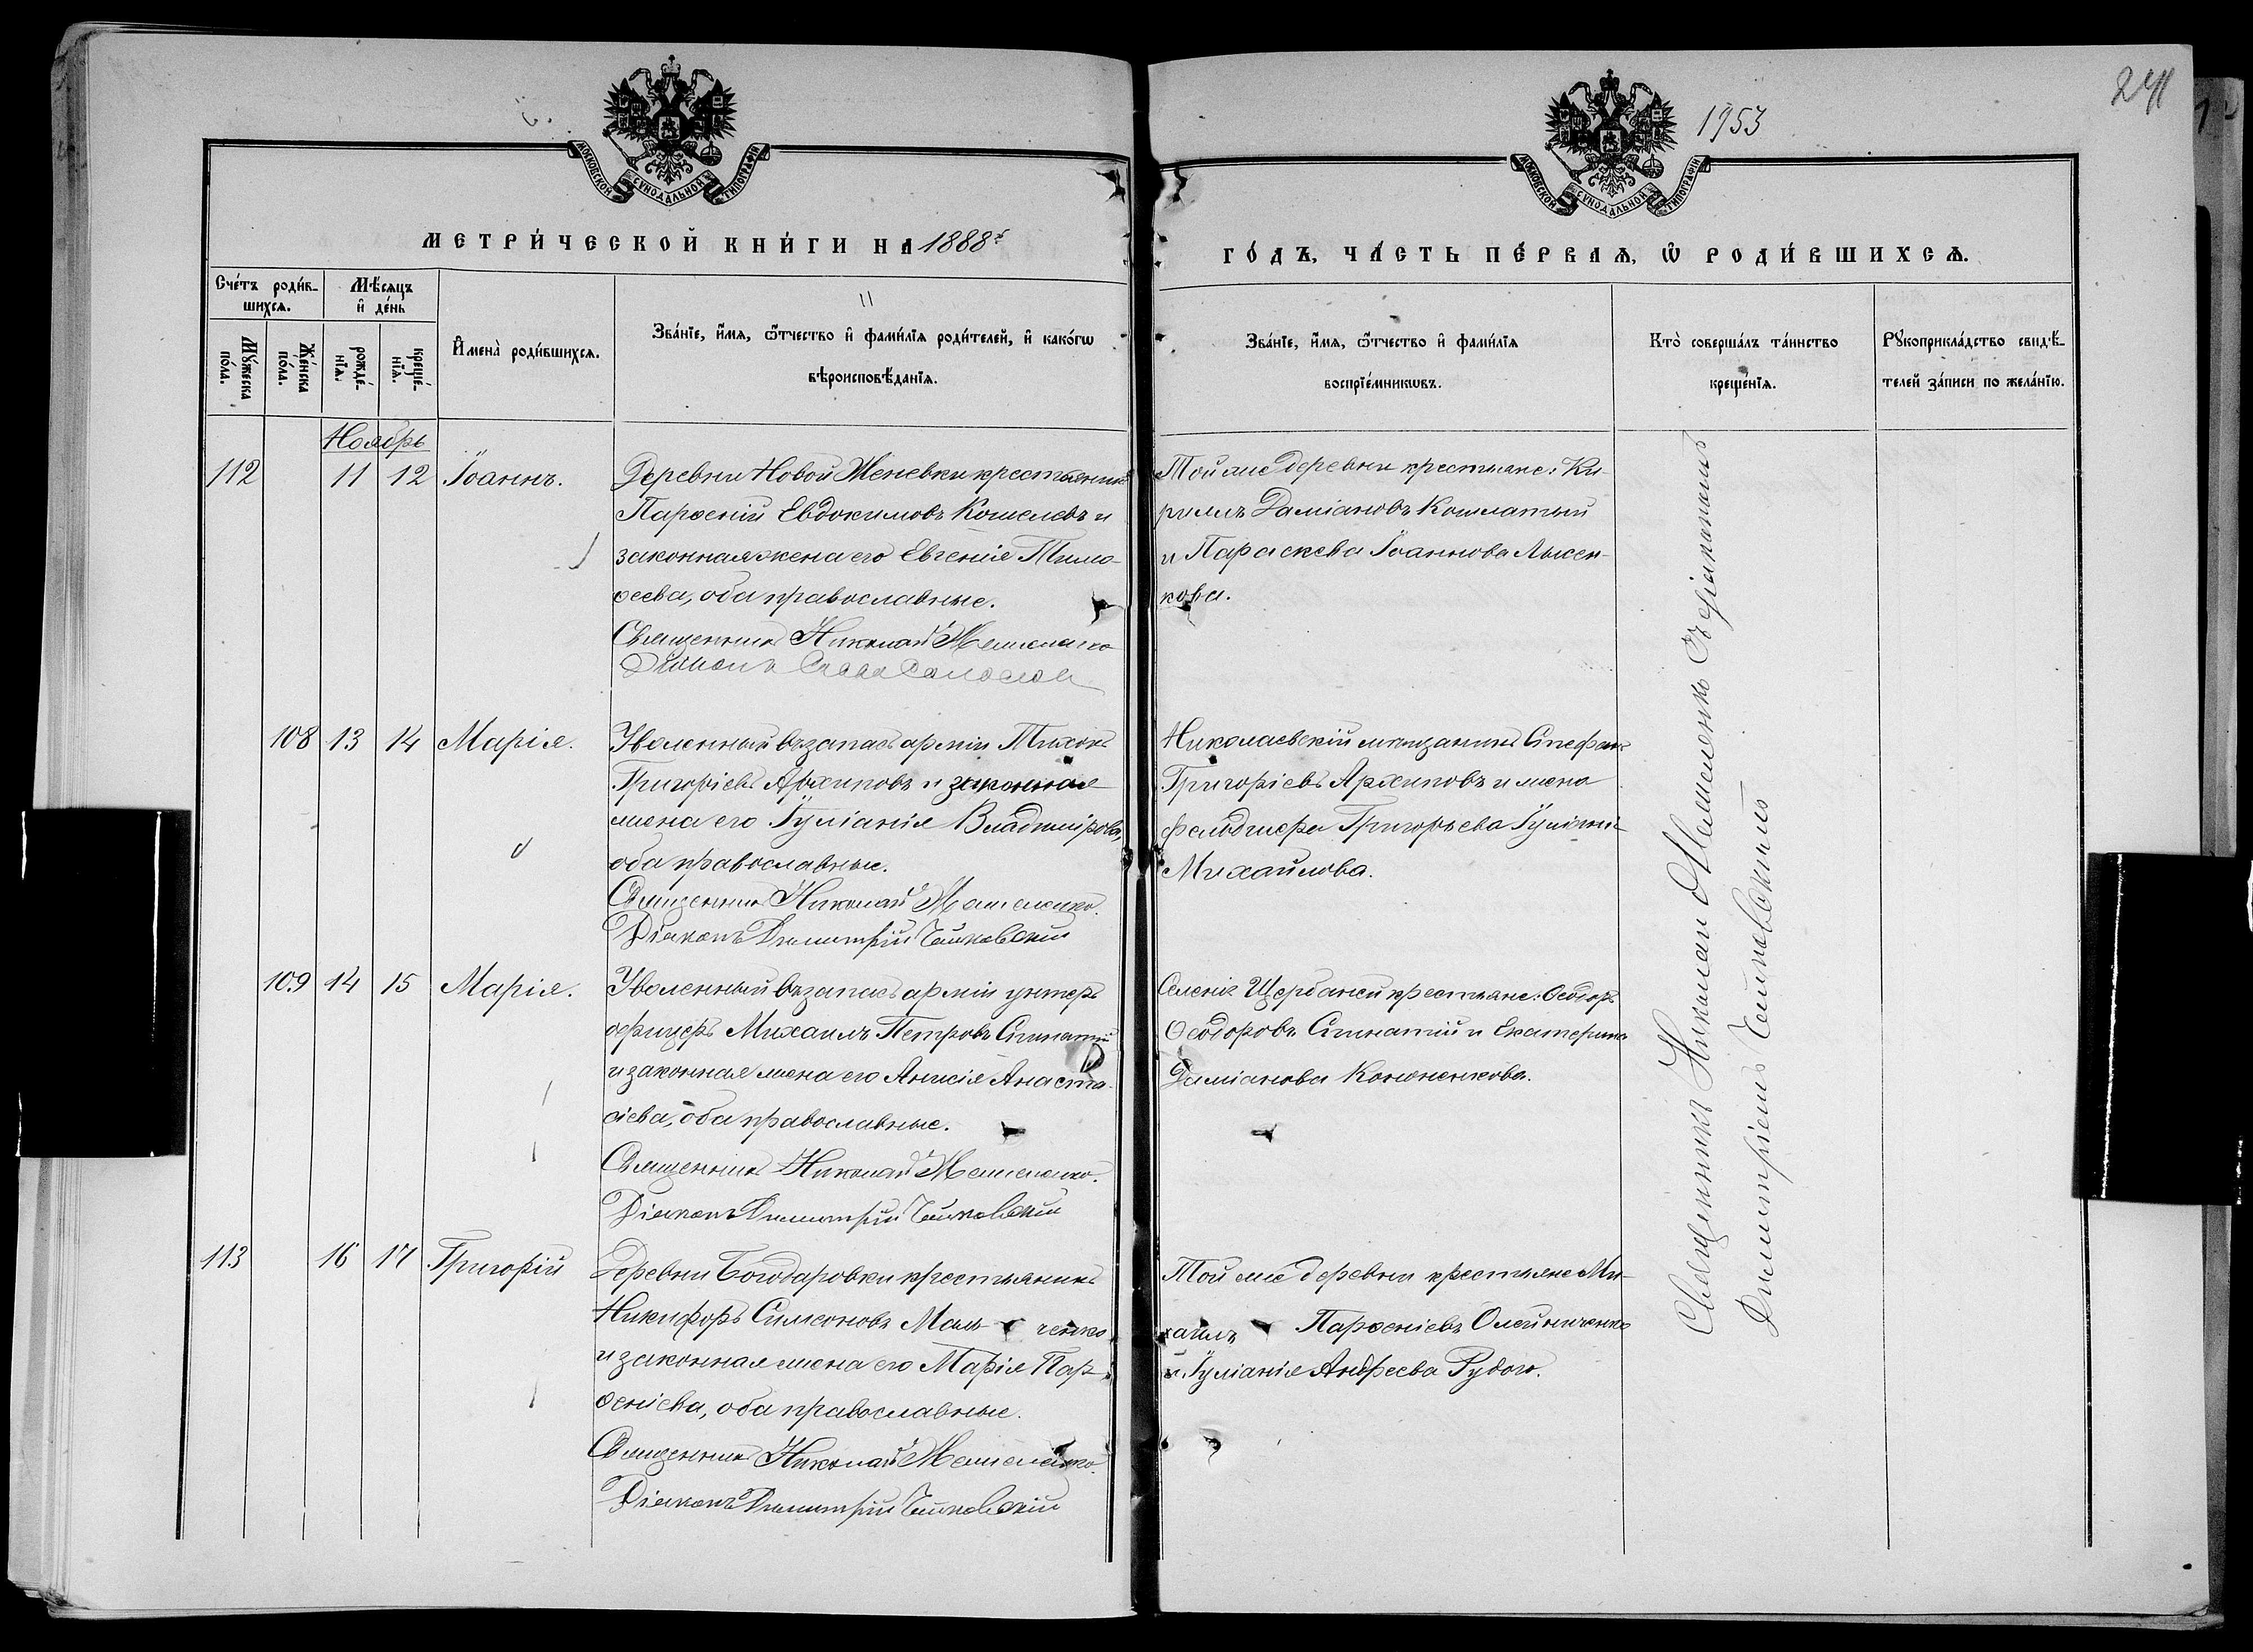 1953
241
МОСКОВСКОЙ СУНОДАЛЬНОЙ ТИПОГРАФІИ
МОСКОВСКОЙ СУНОДАЛЬНОЙ ТИПОГРАФІИ
МЕТРИ́ЧЕСКОЙ КНИ́ГИ НА 1888й
ГО́ДЪ, ЧА́СТЬ ПЕ́РВАЯ, Ѽ РОДИ́ВШИХСѦ.
Сче́тъ роди́вшихсѧ.
Мꙋ́жеска по́ла.
Же́нска по́ла.
Мѣ́сѧцъ и҆ де́нь
рожде́нїѧ.
креще́нїѧ.
И҆мена̀ роди́вшихсѧ.
11
Зва́нїе, и҆́мѧ, ѻ҆́тчество и҆ фами́лїѧ роди́телей, и҆ како́гѡ
вѣроисповѣ́данїѧ.
Зва́нїе, и҆́мѧ, ѻ҆́тчество и҆ фами́лїѧ
воспрїе́мникѡвъ.
Кто̀ соверша́лъ та́инство
креще́нїѧ.
Рꙋкоприкла́дство свидѣ́-
телей за́писи по жела́нїю.
Ноябрь
112 11 12 Іоаннъ.
Деревни Новой Женевки крестьянинъ
Парѳеній Евдокимовъ Кошелевъ и
законная жена его Евгенія Тимо-
ѳеева, оба православные.
Священникъ Николай Мешменко
Діаконъ
Той же деревни крестьяне: Ки-
риллъ Даміановъ Кошлатый
и Параскева Іоаннова Лысен-
кова.
108 13 14 Марія.
Уволенный въ запасъ арміи Тихонъ
Григоріевъ Архиповъ и законная
жена его Іуліанія Владимірова,
оба православные.
Священникъ Николай Мешменко.
Діаконъ Димитрій Чайковскій
Николаевскій мѣщанинъ Стефанъ
Григоріевъ Архиповъ и жена
фельдшера Григорьева Іуліанія
Михайлова.
109 14 15 Марія.
Уволенный въ запасъ арміи унтеръ
офицеръ Михаилъ Петровъ
и законная жена его Анисія Анаста-
сіева, оба православные.
Священникъ Николай Мешменко.
Діаконъ Димитрій Чайковскій
Селенія Щербаней крестьяне: Ѳеодоръ
Ѳеодоровъ и Екатерина
Даміанова Кононенкова.
113 16 17 Григорій
Деревни Богодаровки крестьянинъ
Никифоръ Симеоновъ Маль ченко
и законная жена его Марія Пар-
ѳеніева, оба православные.
Священникъ Николай Мешменко.
Діаконъ Димитрій Чайковскій
Той же деревни крестьяне Ми-
хаилъ Парѳеніевъ Олейниченко
и Іуліанія Андреева Рудого.
Священникъ Николай Мешменко съ діакономъ
Димитріемъ Чайковскимъ